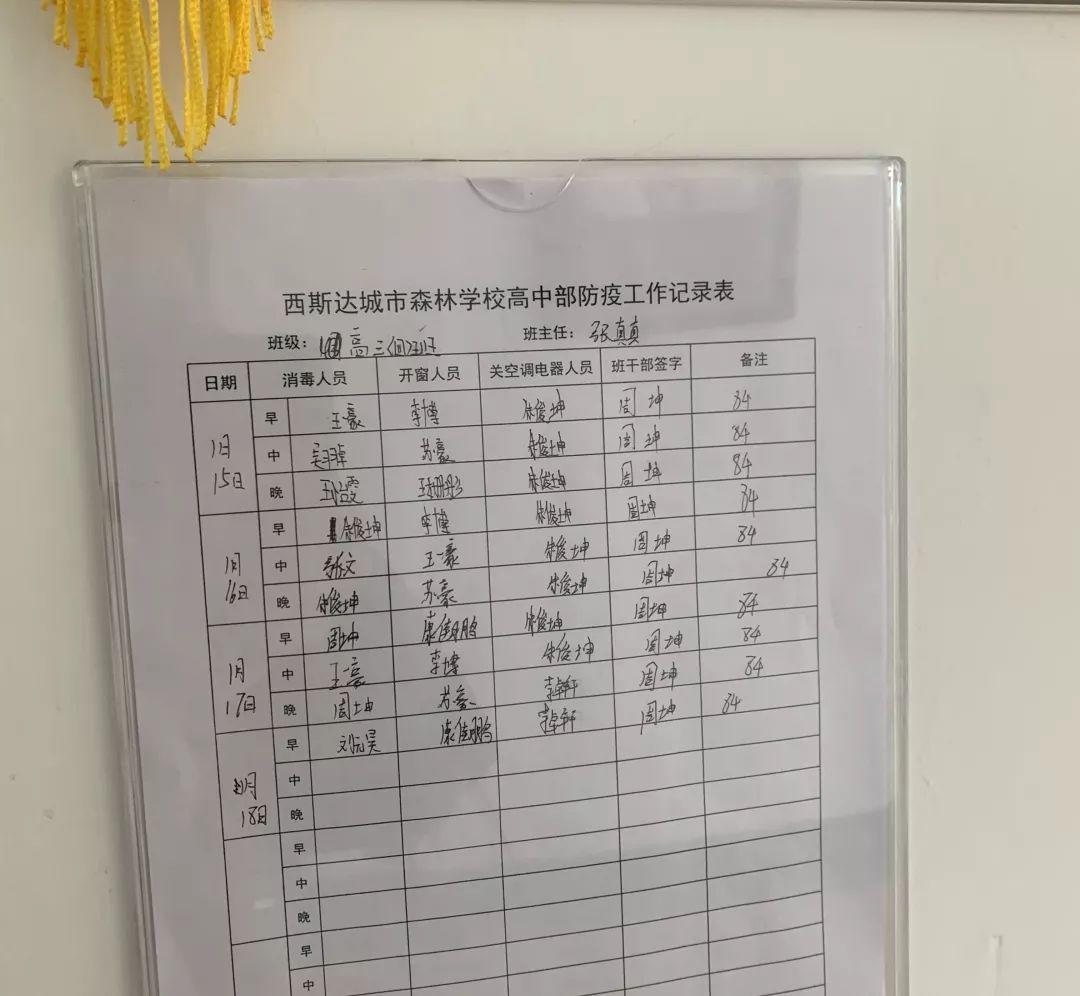 西斯达城市森林学校高中部防疫工作记录表
班级： 高三 班主任： 张真真
日期 消毒人员 开窗人员 关空调电器人员 班干部签字 备注
1月15日
早 王豪 李博 朱俊坤 周坤 84
中 苏豪 朱俊坤 周坤 84
晚 朱俊坤 周坤 84
1月16日
早 朱俊坤 李博 朱俊坤 周坤 84
中 张文 王豪 朱俊坤 周坤 84
晚 朱俊坤 苏豪 朱俊坤 周坤 84
1月17日
早 周坤 康佳鹏 朱俊坤 周坤 84
中 王豪 李博 朱俊坤 周坤 84
晚 周坤 苏豪 周坤 84
月18日
早 刘元昊 康佳鹏 周坤 84
中
晚
早
中
晚
早
中